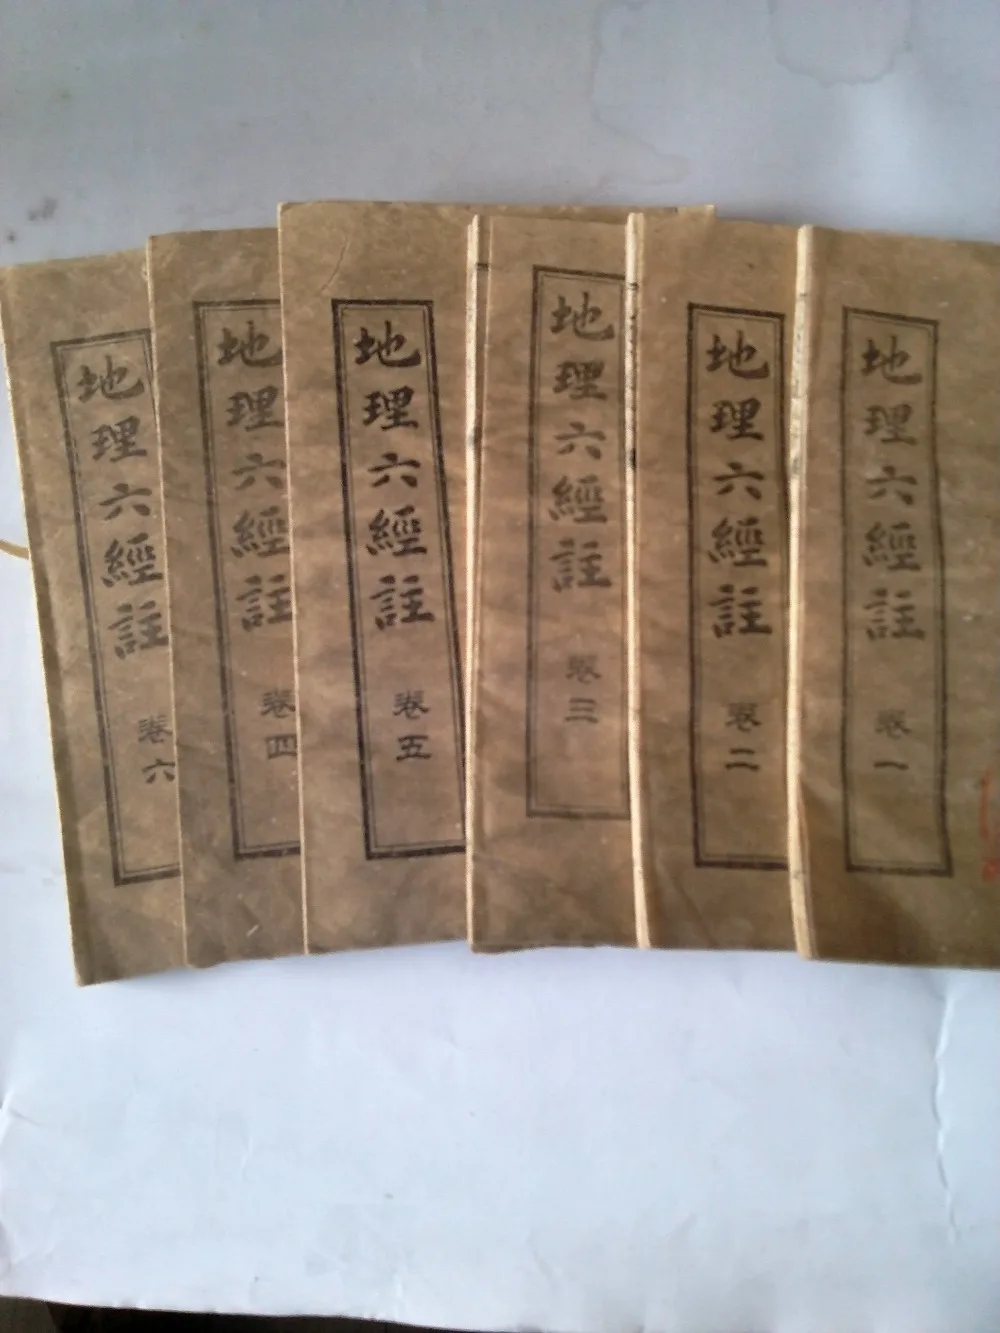 地理六經註 卷一
地理六經註 卷二
地理六經註 卷三
地理六經註 卷五
地理六經註 卷四
地理六經註 卷六